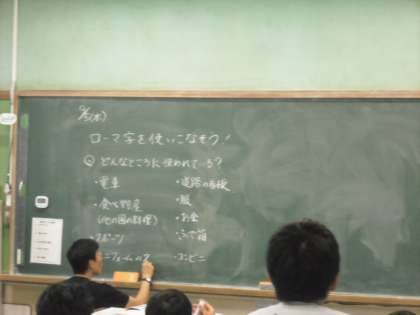 9/5(木)
ローマ字を使いこなそう!
Q どんなところに使われている?
・電車
・食べ物屋
(他の国の料理)
・スポーツ
・道路の看板
・服
・お金
・ふで箱
・コンビニ